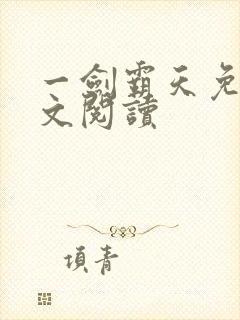 一劍霸天免
文閱讀
項青